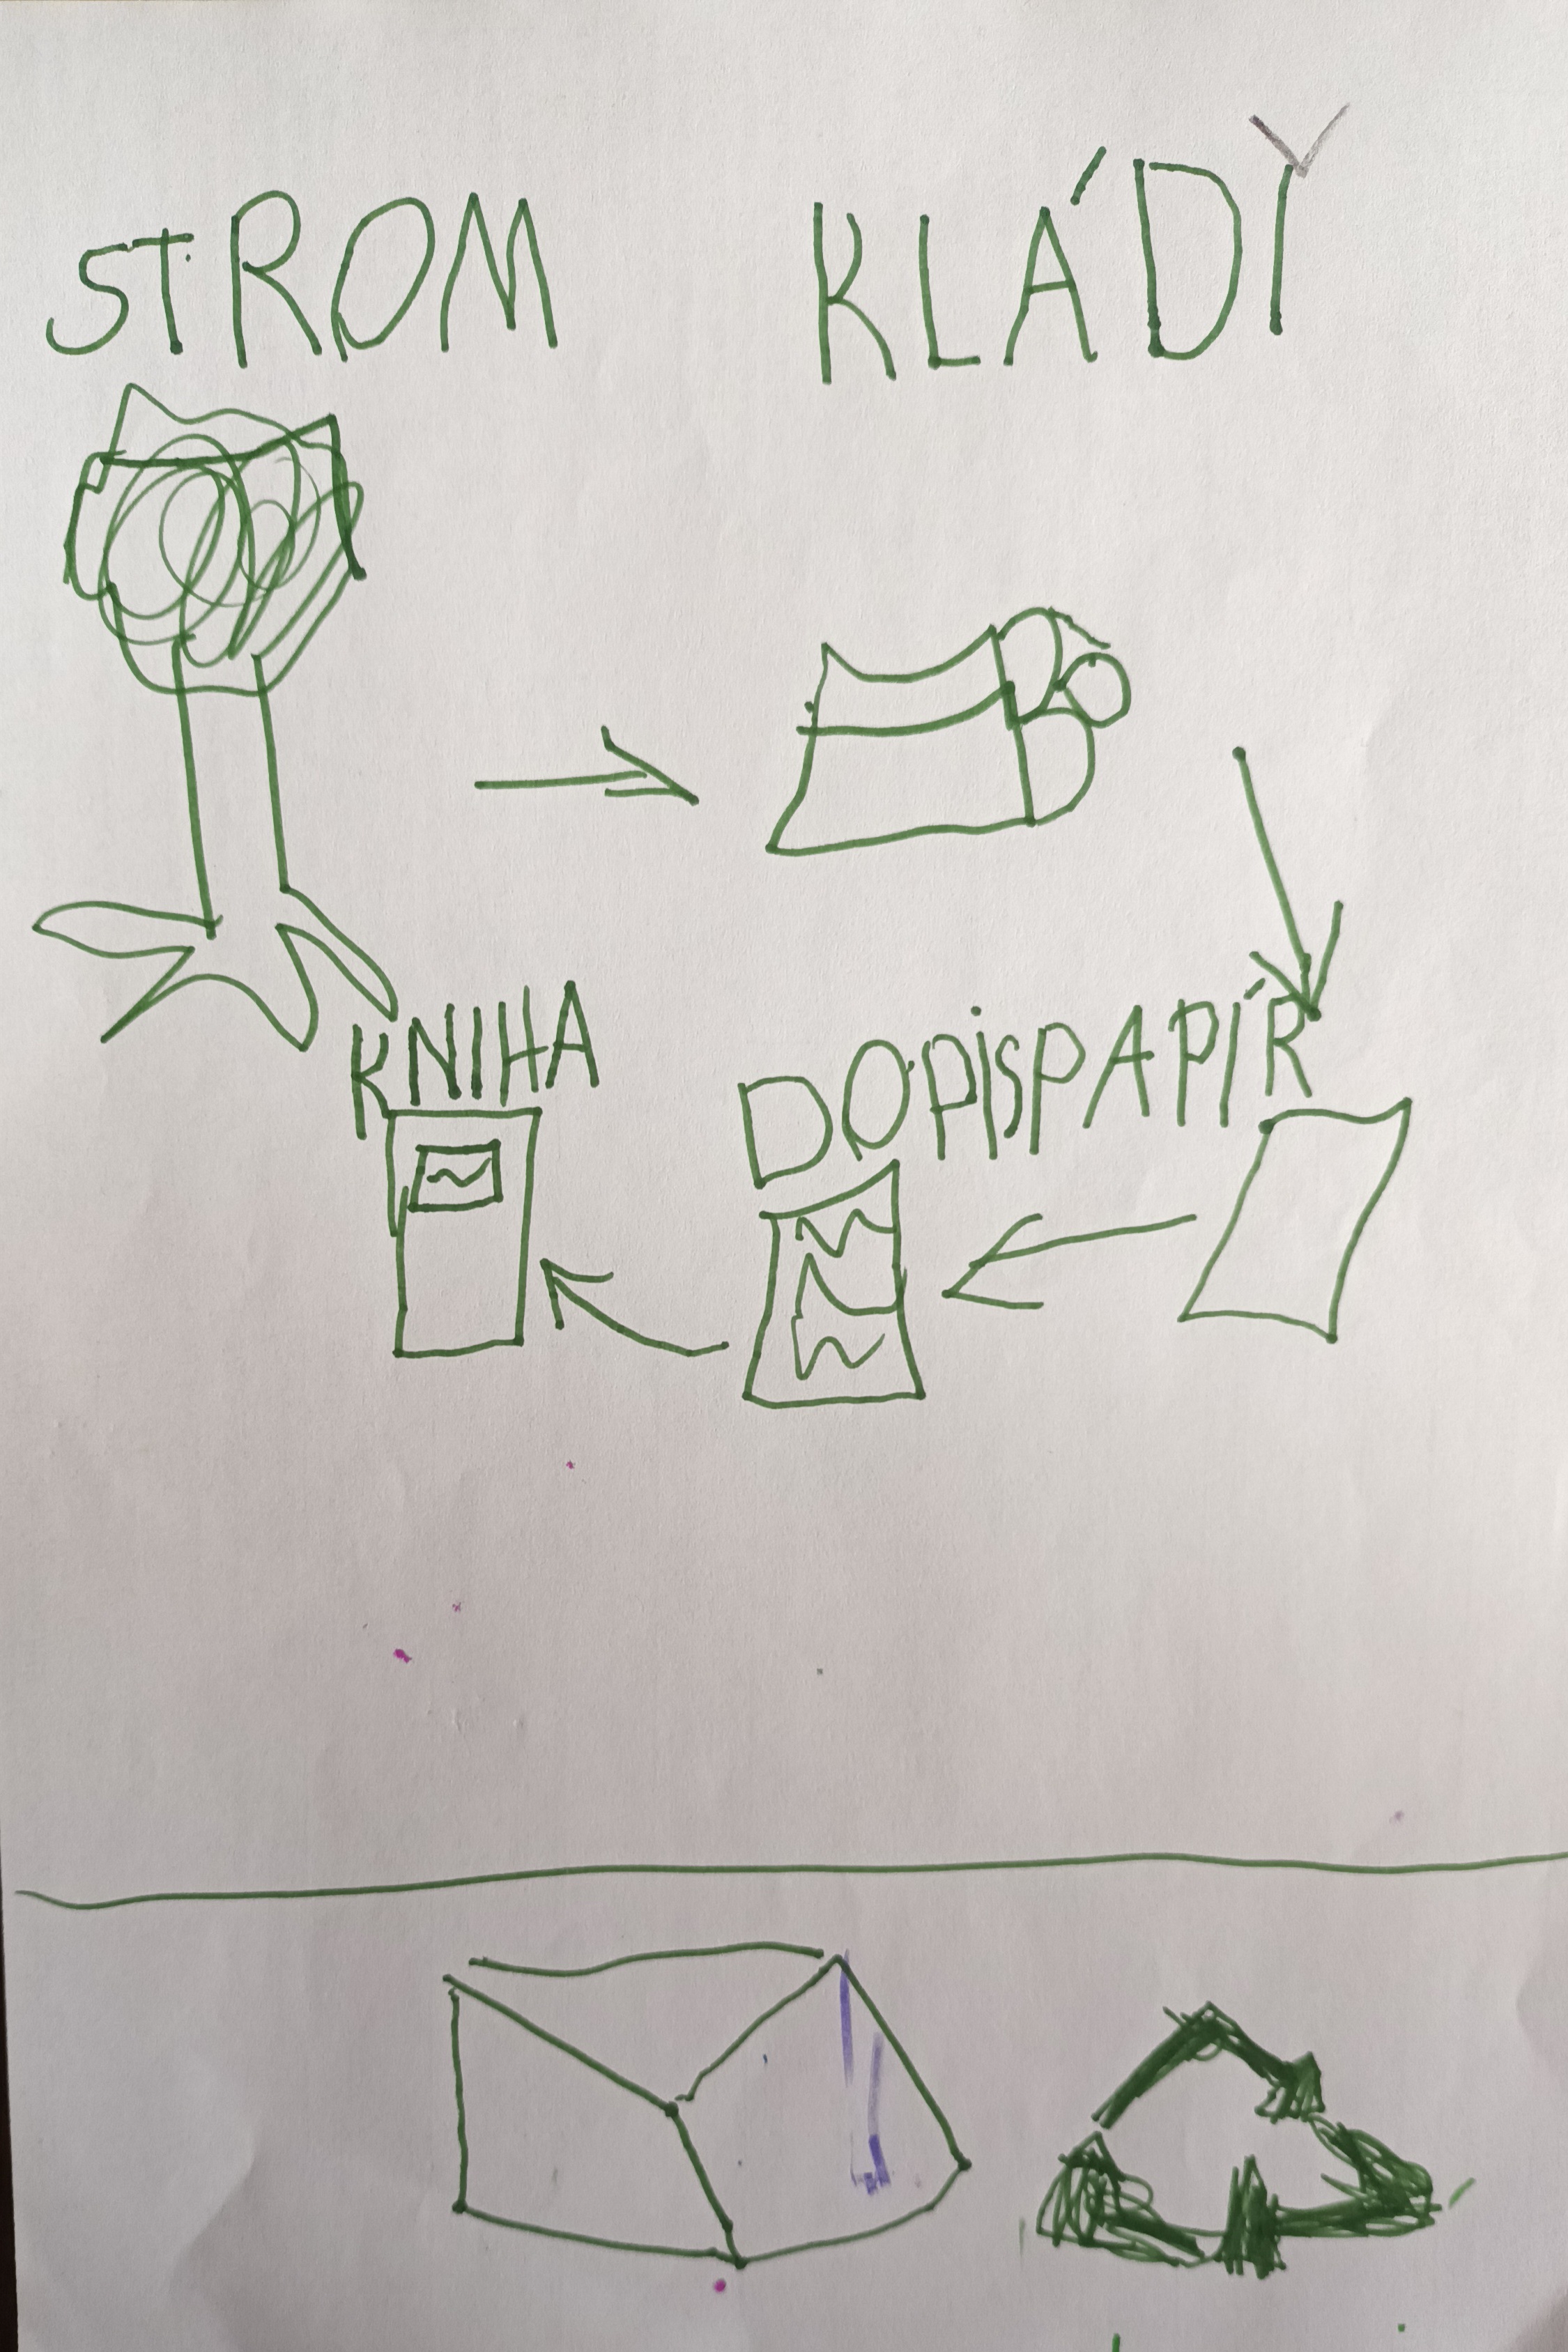 STROM KLÁDY
KNIHA DOPISPAPÍR